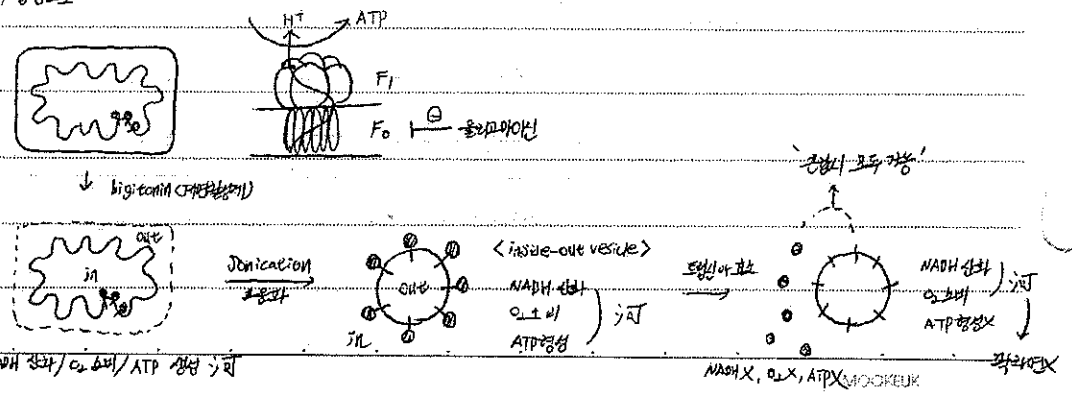 H⁺ ATP
F₁
F₀ ⊖ 올리고마이신
'혼합시 모두 가능'
↓ Digitonin (계면활성제)
out
in
Sonication
초음파
out
in
<inside-out vesicle>
NADH 산화
O₂ 소비
ATP 형성
可
트립신 or 효소
NADH 산화
O₂ 소비
可
ATP 형성X
산화/O₂ 소비/ATP 생성 可
NADH X, O₂X, ATPX
MOOKEUK